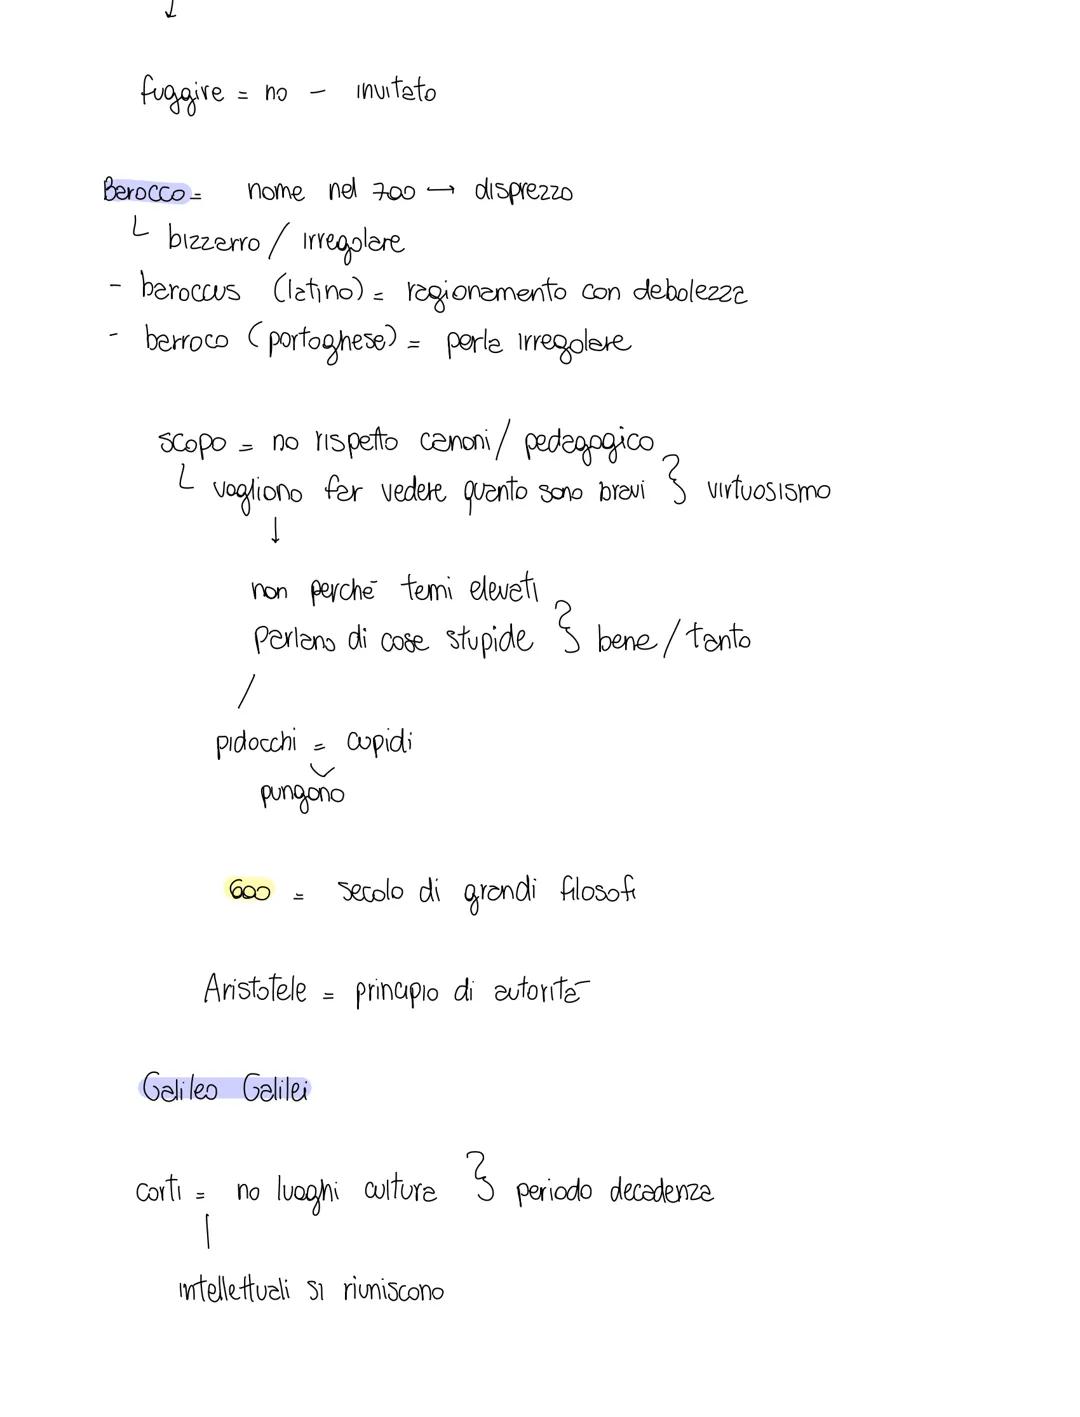 ↓
fuggire = no - invitato
Barocco = nome nel 700 → disprezzo
└ bizzarro / irregolare
- baroccus (latino) = ragionamento con debolezza
- barroco (portoghese) = perla irregolare
scopo = no rispetto canoni / pedagogico
└ vogliono far vedere quanto sono bravi } virtuosismo
↓
non perché temi elevati
Parlano di cose stupide } bene / tanto
/
pidocchi = cupidi
pungono
600 = secolo di grandi filosofi
Aristotele = principio di autorità
Galileo Galilei
corti = no luoghi cultura } periodo decadenza
|
intellettuali si riuniscono